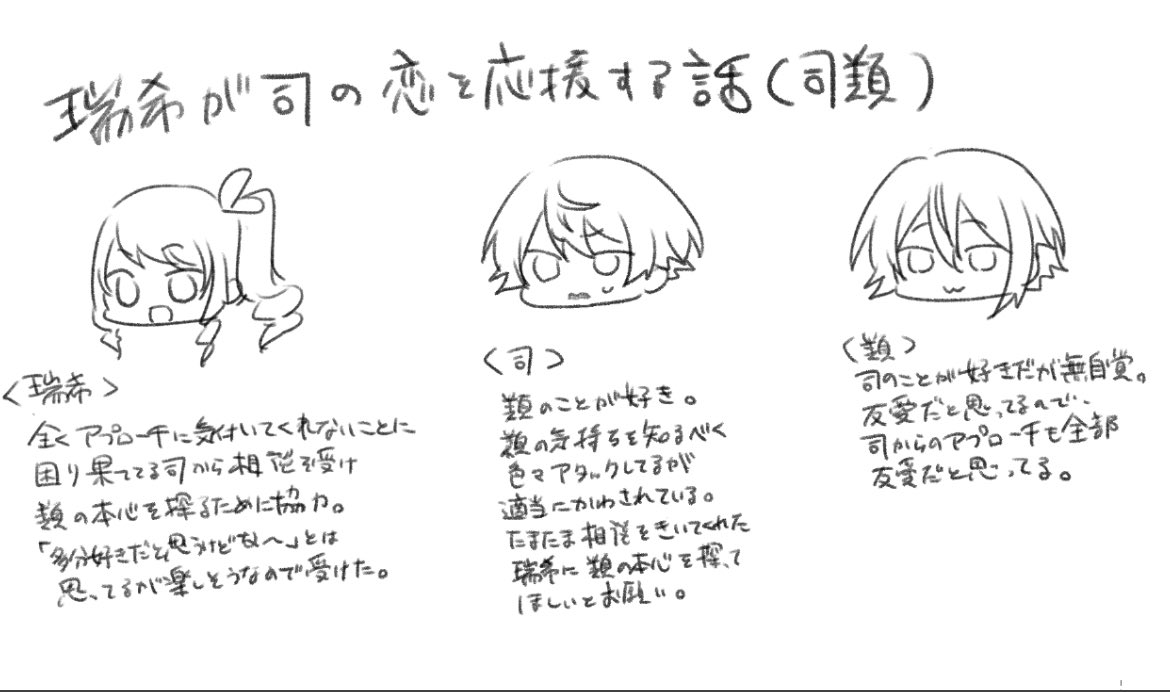 瑞希が司の恋を応援する話(司類)
<瑞希>
全くアプローチに気付いてくれないことに
困り果ててる司から相談を受け
類の本心を探るために協力。
「多分好きだと思うけどな〜」とは
思ってるが楽しそうなので受けた。
<司>
類のことが好き。
類の気持ちを知るべく
色々アタックしてるが
適当にかわされている。
たまたま相談をきいてくれた
瑞希に類の本心を探って
ほしいとお願い。
<類>
司のことが好きだが無自覚。
友愛だと思ってるので、
司からのアプローチも全部
友愛だと思ってる。